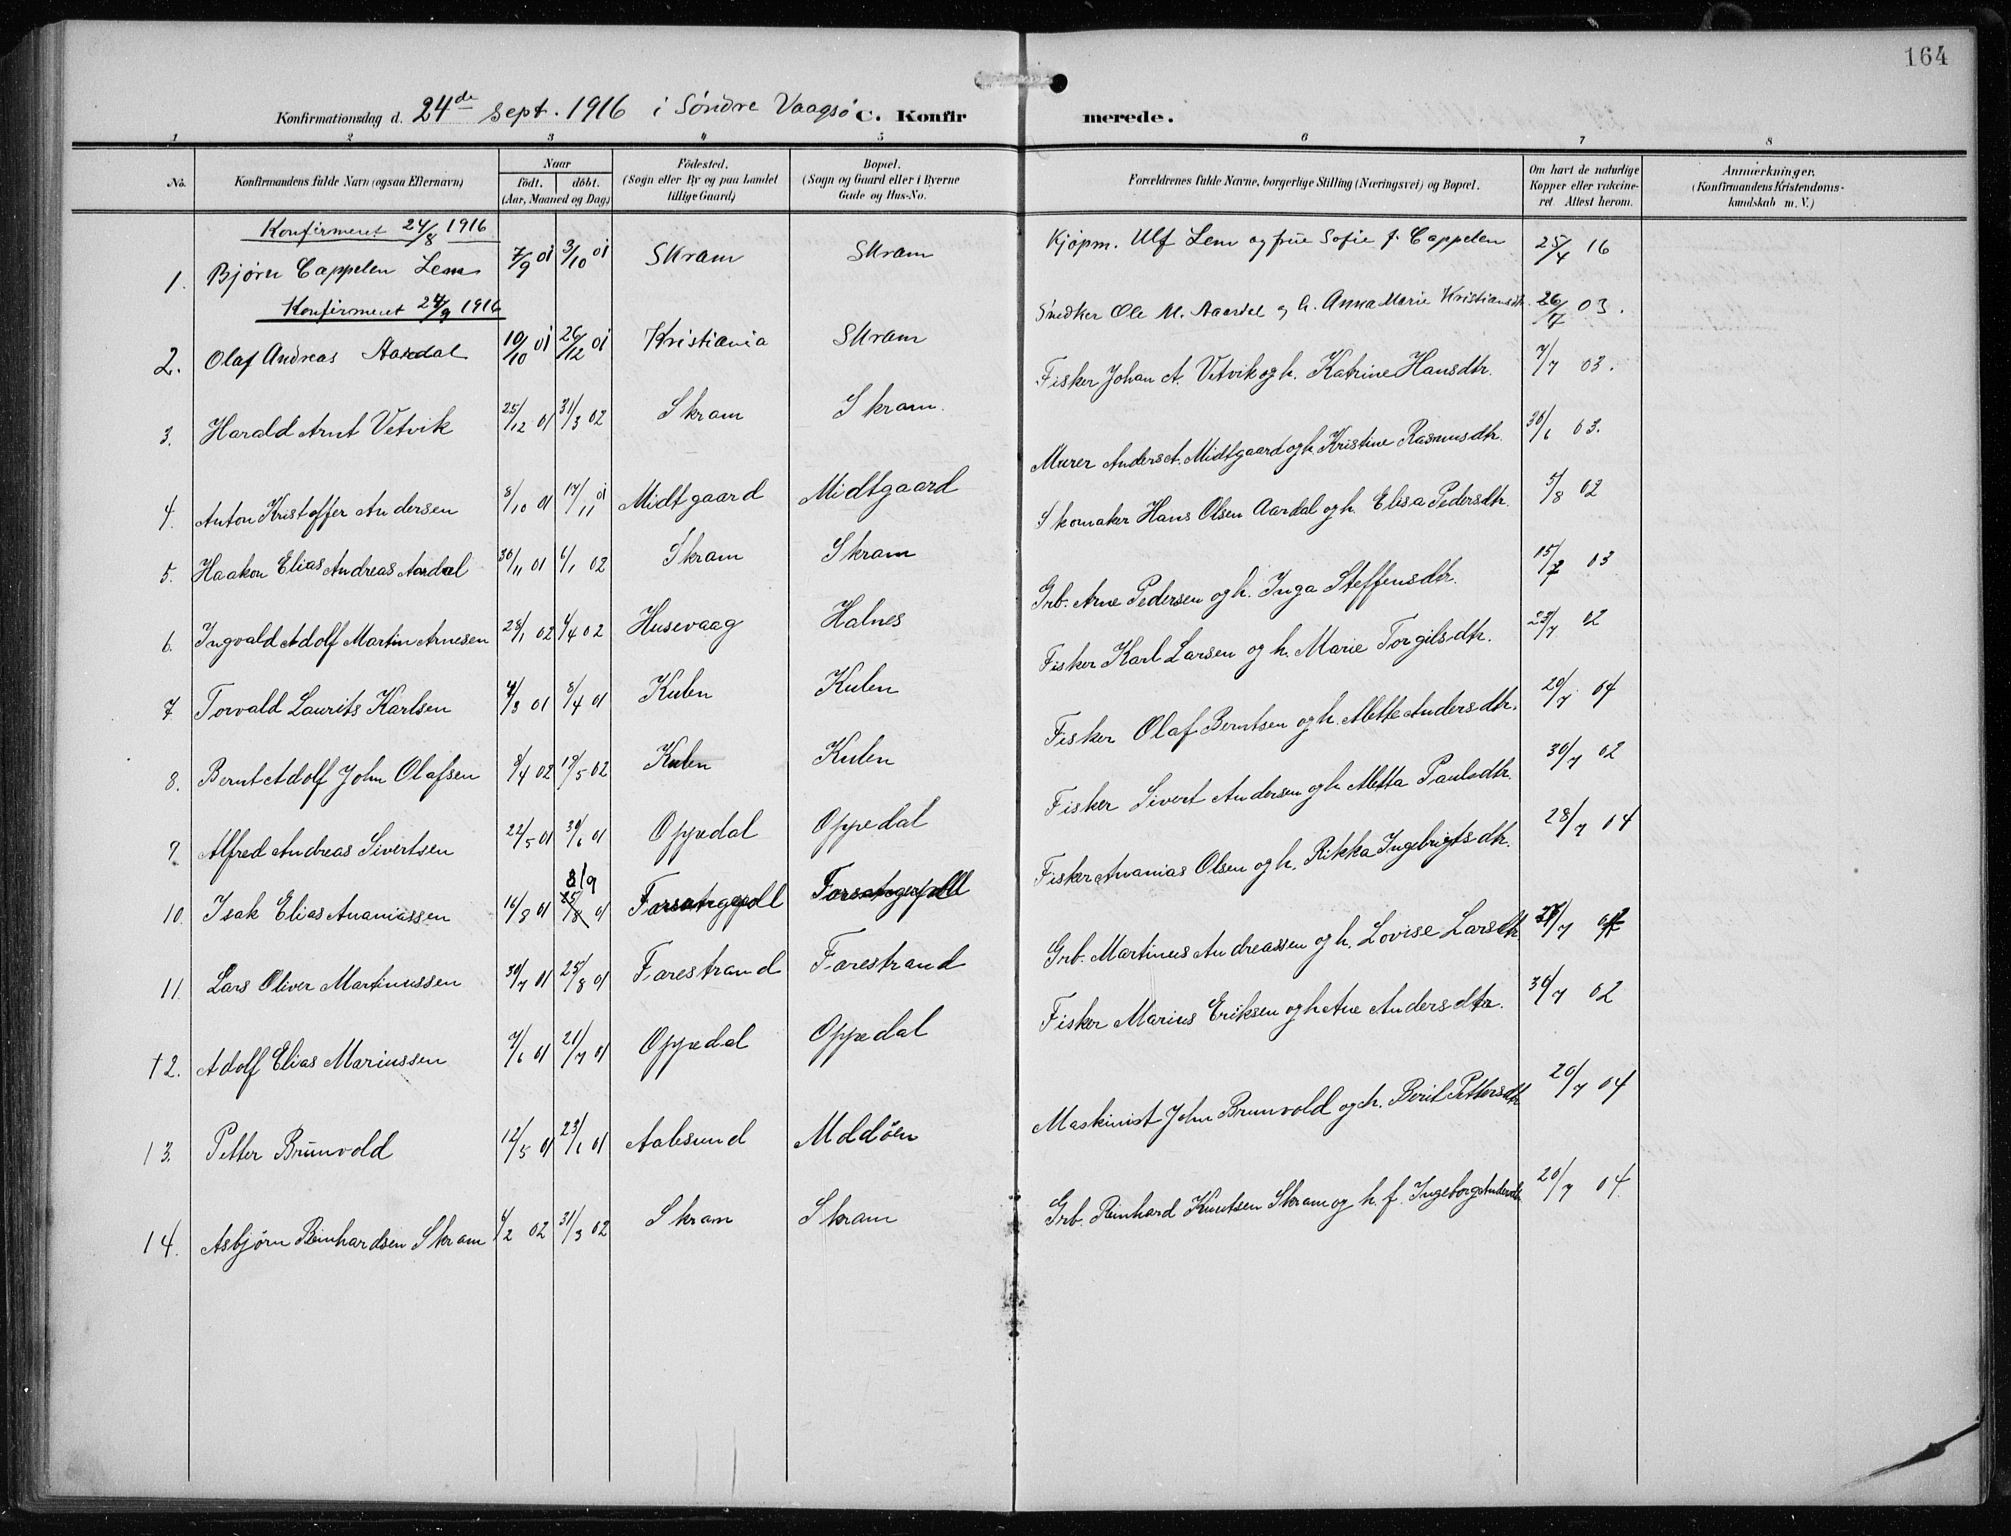 164
Konfirmationsdag d. 24de Sept. 1916 i Söndre Vaagsö C. Konfirmerede.
1 2 3 4 5 6 7 8
No. Konfirmandens fulde Navn (ogsaa Efternavn) Naar födt. döbt. (Aar, Maaned og Dag) Födested. (Sogn eller By og paa Landet tillige Gaard) Bopæl. (Sogn og Gaard eller i Byerne Gade og Hus-No. Forældrenes fulde Navne, borgerlige Stilling (Næringsvei) og Bopæl. Om havt de naturlige Kopper eller vakcineret. Attest herom. Anmærkninger. (Konfirmandens Kristendomskundskab m. V.)
Konfirmeret 24/8 1916
1. Bjørn Cappelen Lem 7/9 01 3/10 01 Skram Skram Kjøpm. Ulf Lem og frue Sofie f. Cappelen 25/4 16
Konfirmeret 24/9 1916
2. Olaf Andreas Aardal 10/10 01 26/12 01 Kristiania Skram Snedker Ole M. Aardal og h. Anna Marie Kristiansdtr. 26/7 03.
3. Harald Arnt Vetvik 25/12 01 31/3 02 Skram Skram. Fisker Johan A. Vetvik og h. Katrine Hansdtr. 7/7 03.
4. Anton Kristoffer Andersen 8/10 01 17/11 01 Midtgaard Midtgaard Murer Anders A. Midtgaard og h. Kristine Rasmusdtr. 30/6 03.
5. Haakon Elias Andreas Aardal 30/11 01 6/1 02 Skram Skram Skomaker Hans Olsen Aardal og h. Elisa Pedersdtr. 5/8 02
6. Ingvald Adolf Martin Arnesen 28/1 02 6/4 02 Husevaag Halnes Grb. Arne Pedersen og h. Inga Steffensdtr. 15/7 03
7 Torvald Laurits Karlsen 4/3 01 8/4 01 Kulen Kulen Fisker Karl Larsen og h. Marie Torgilsdtr. 23/7 02
8. Bernt Adolf John Olafsen 8/4 02 19/5 02 Kulen Kulen Fisker Olaf Berntsen og h. Mette Andersdtr. 20/7 04
9. Alfred Andreas Sivertsen 22/5 01 30/6 01 Oppedal Oppedal Fisker Sivert Andersen og h. Metta Paulsdtr. 30/7 02
10. Isak Elias Ananiassen 16/8 01 8/9 25/8 01 Fisker Ananias Olsen og h. Rikka Ingebrigtsdtr. 28/7 04
11. Lars Oliver Martinussen 30/7 01 25/8 01 Farestrand Farestrand Grb. Martinus Andreassen og h. Lovise Larsdtr.
12. Adolf Elias Mariussen 7/6 01 21/7 01 Oppedal Oppedal Fisker Marius Eriksen og h Ane Andersdtr. 30/7 02
13. Petter Brünvold 12/5 01 23/6 01 Aalesund Moldöen Maskinist John Brunvold og h. Berit Pettersdtr 20/7 04
14. Asbjørn Reinhardsen Skram 6/2 02 31/3 02 Skram Skram Grb. Reinhard Knutsen Skram og h. f. Ingeborg Andersdtr 20/7 04.